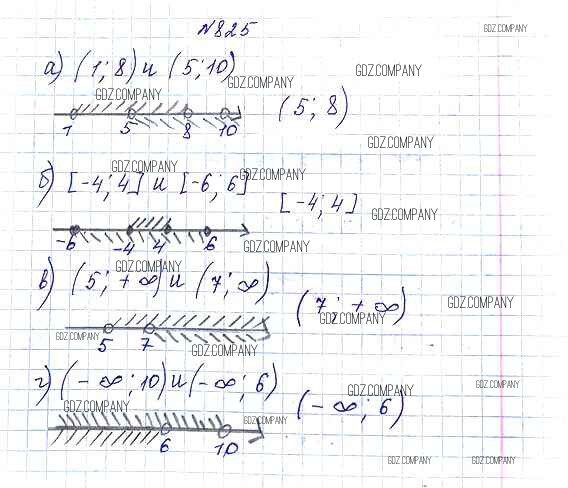 №825
GDZ.COMPANY
а) (1; 8) и (5; 10)
GDZ.COMPANY
GDZ.COMPANY
GDZ.COMPANY
(5; 8)
1 5 8 10
GDZ.COMPANY
GDZ.COMPANY
GDZ.COMPANY
б) [-4; 4] и [-6; 6]
[-4; 4]
GDZ.COMPANY
-6 -4 4 6
GDZ.COMPANY
GDZ.COMPANY
в) (5; +∞) и (7; ∞)
(7; +∞)
GDZ.COMPANY
GDZ.COMPANY
GDZ.COMPANY
5 7
GDZ.COMPANY
г) (-∞; 10) и (-∞; 6)
GDZ.COMPANY
GDZ.COMPANY
(-∞; 6)
GDZ.COMPANY
GDZ.COMPANY
6 10
GDZ.COMPANY
GDZ.COMPANY